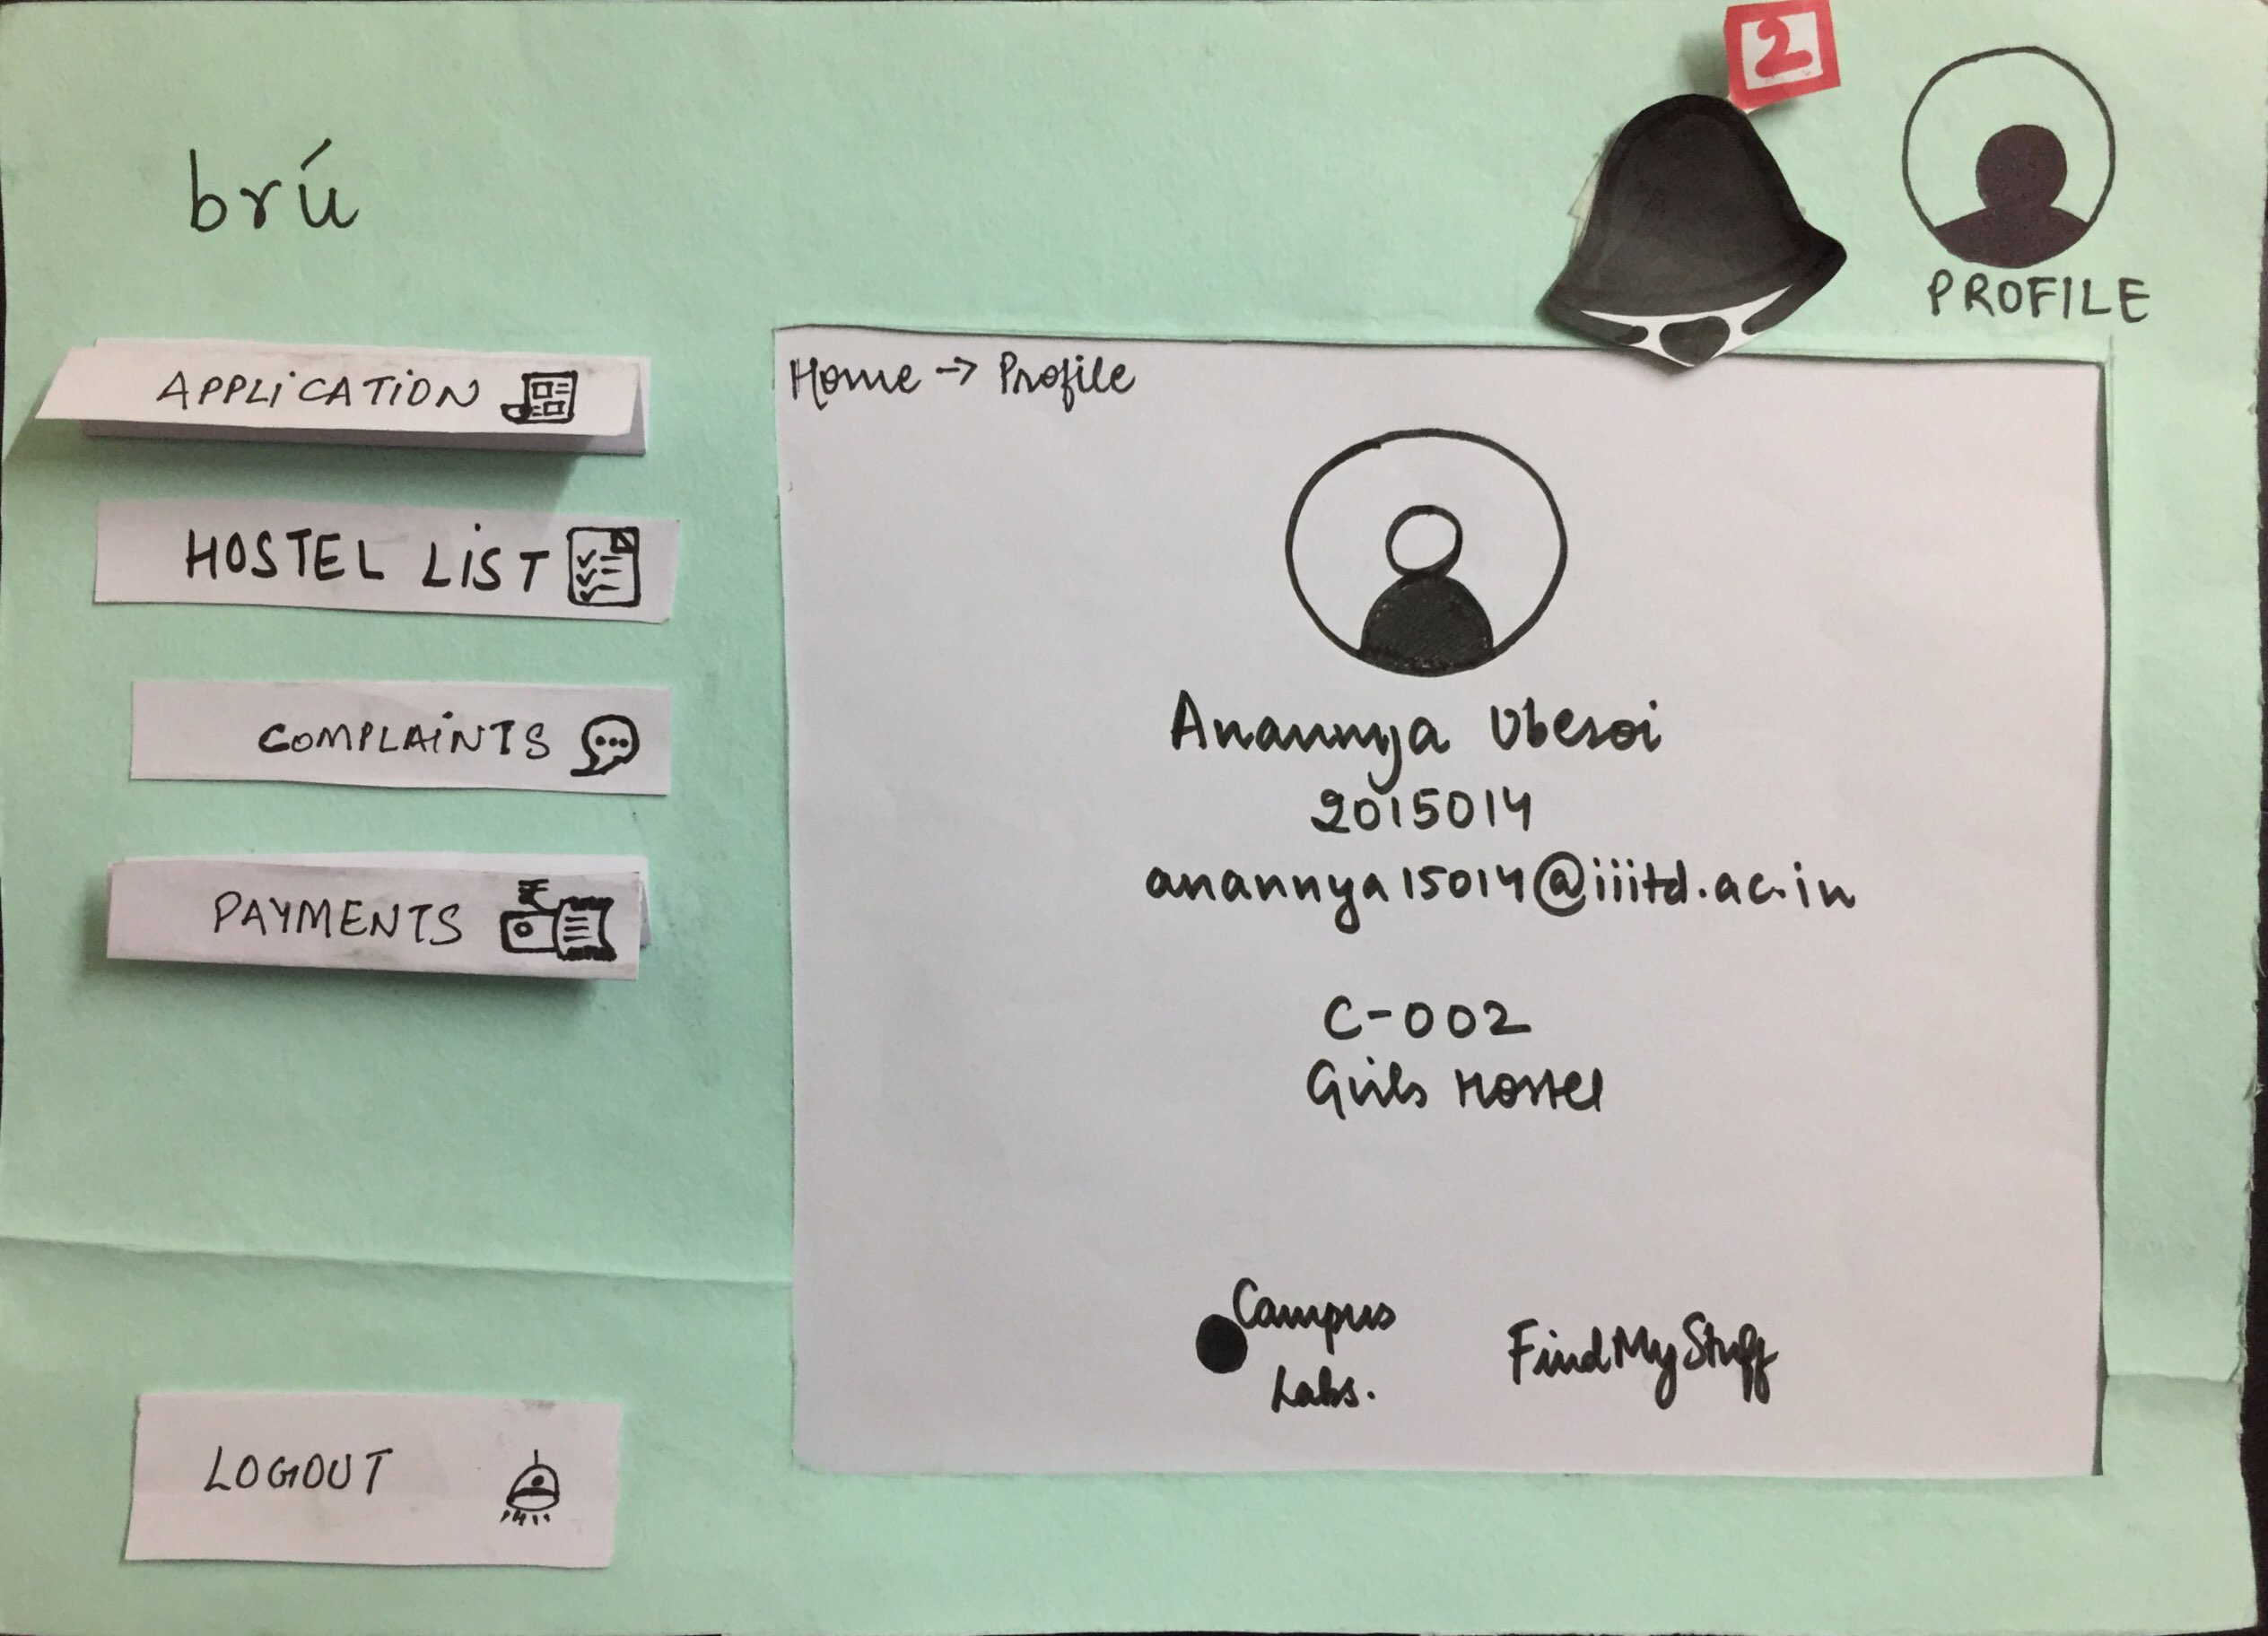 brú
2
PROFILE
APPLICATION
HOSTEL LIST
COMPLAINTS
PAYMENTS
₹
LOGOUT
Home → Profile
Anannya Uberoi
2015014
anannya15014@iiitd.ac.in
C-002
Girls Hostel
Campus
Labs.
FindMyStuff